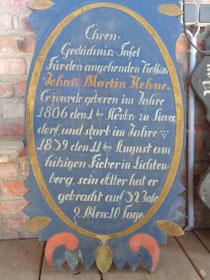 Ehren-
Gedächtnis-Tafel
Für den angehenden
Johañ Martin Hehne.
Er wurde geboren im Jahre
1806 den 1ten Novbr. zu
dorf, und starb im Jahre
1839 den 11ten August am
hitzigen Fieber in Lichten-
berg, sein Alter hat er
gebracht auf 32 Jahr
9 Mon: 10 Tage.